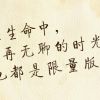 生命中,
再无聊的时光
也都是限量版